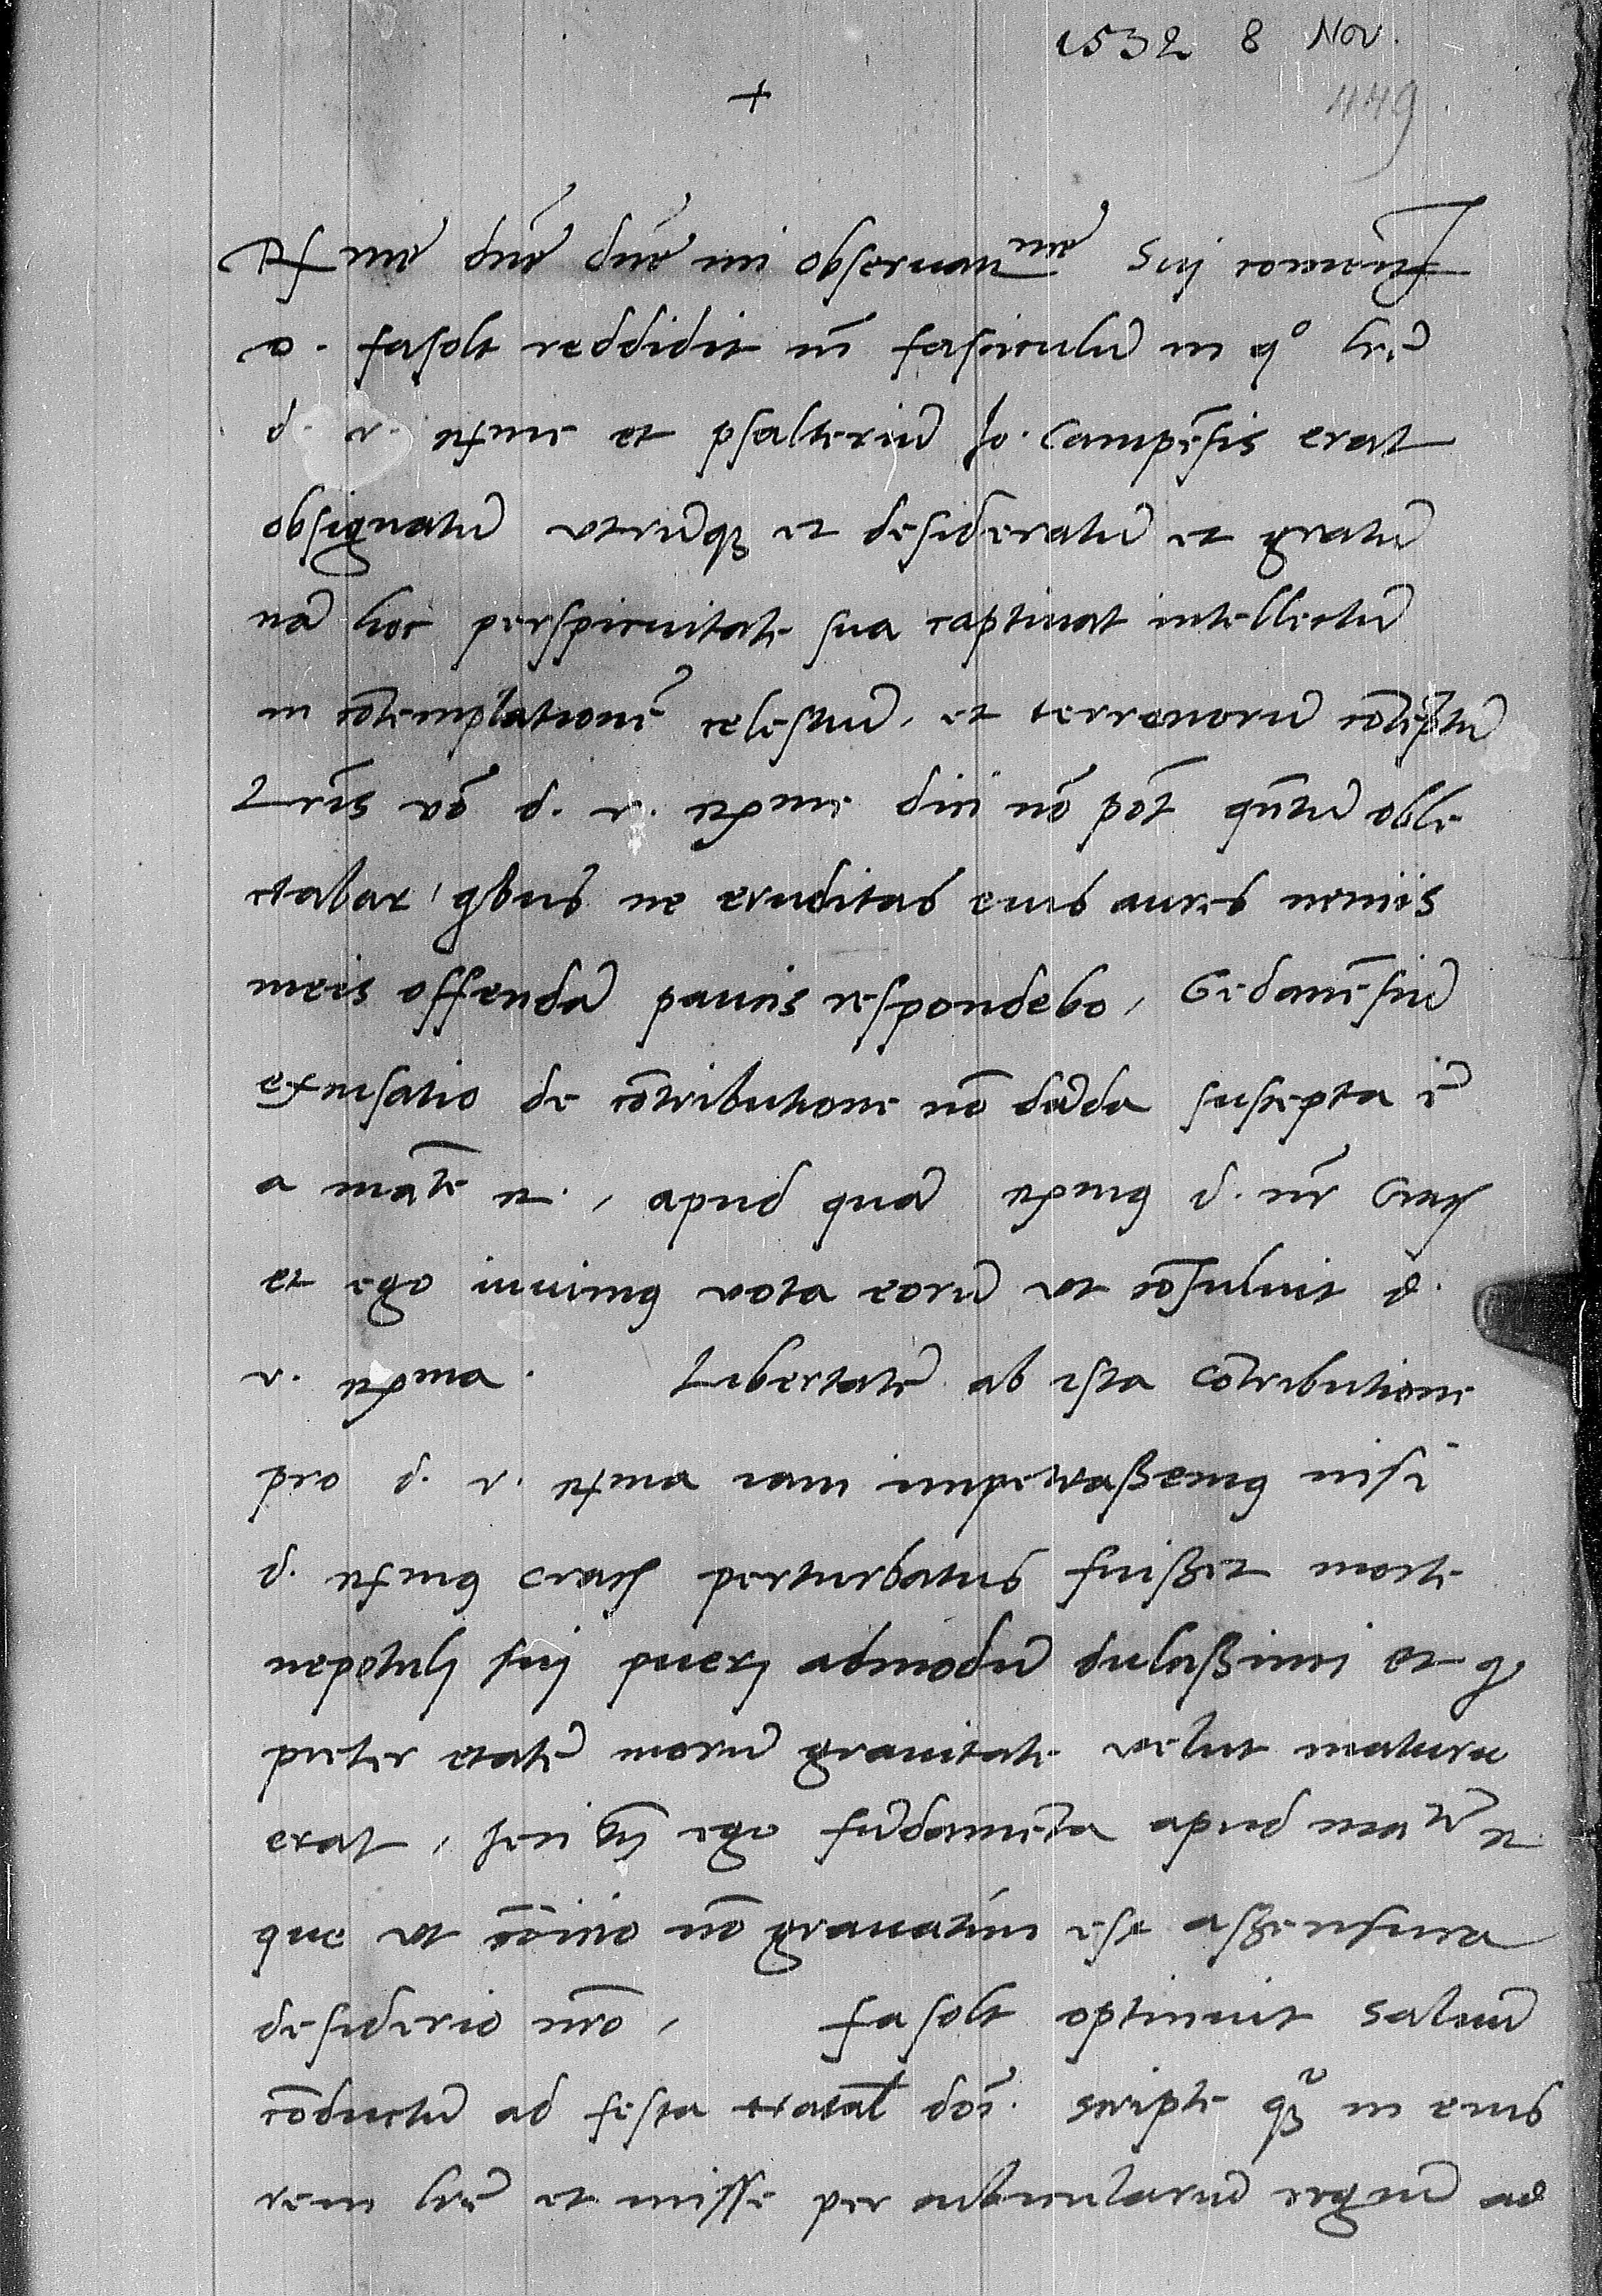 1532 8 Nov.
449
+
Rme dne dne mi obseruanme Sui comendat
a. fasolt reddidit mi fasciculum in qo lre
d. v. Rme et psalterium Jo. Campensis erat
obsignatum utrumqz et desideratum et gratum
nam hoc perspicuitate sua captiuat intellectum
in cotemplatione celestium, et terrenorum cotemptum
Lris vero d. v. Rme dici no pot quatum oble
ctabar, quibus ne eruditas eius aures neniis
meis offendam paucis respondebo, Gedanesium
excusatio de cotributione no danda suscepta e
a mate r., apud quam Rdmus d. nr Crac
et ego iuuimus vota eorum ut cosuluit d.
v. Rma. Libertate ab ista cotributione
pro d. v. Rma iam impetrassemus nisi
d. Rmus crac perturbatus fuisset morte
nepotuli sui pueri admodum dulcissimi et q
preter etate morum grauitate velut matura
erat, ieci tn ego fundameta apud mate r.
que ut coniicio no grauatim est assensura
desiderio nro, fasolt optinuit saluum
coductum ad festa natal doi. scripte qz in eius
rem lre et misse per cubicularium regium ad